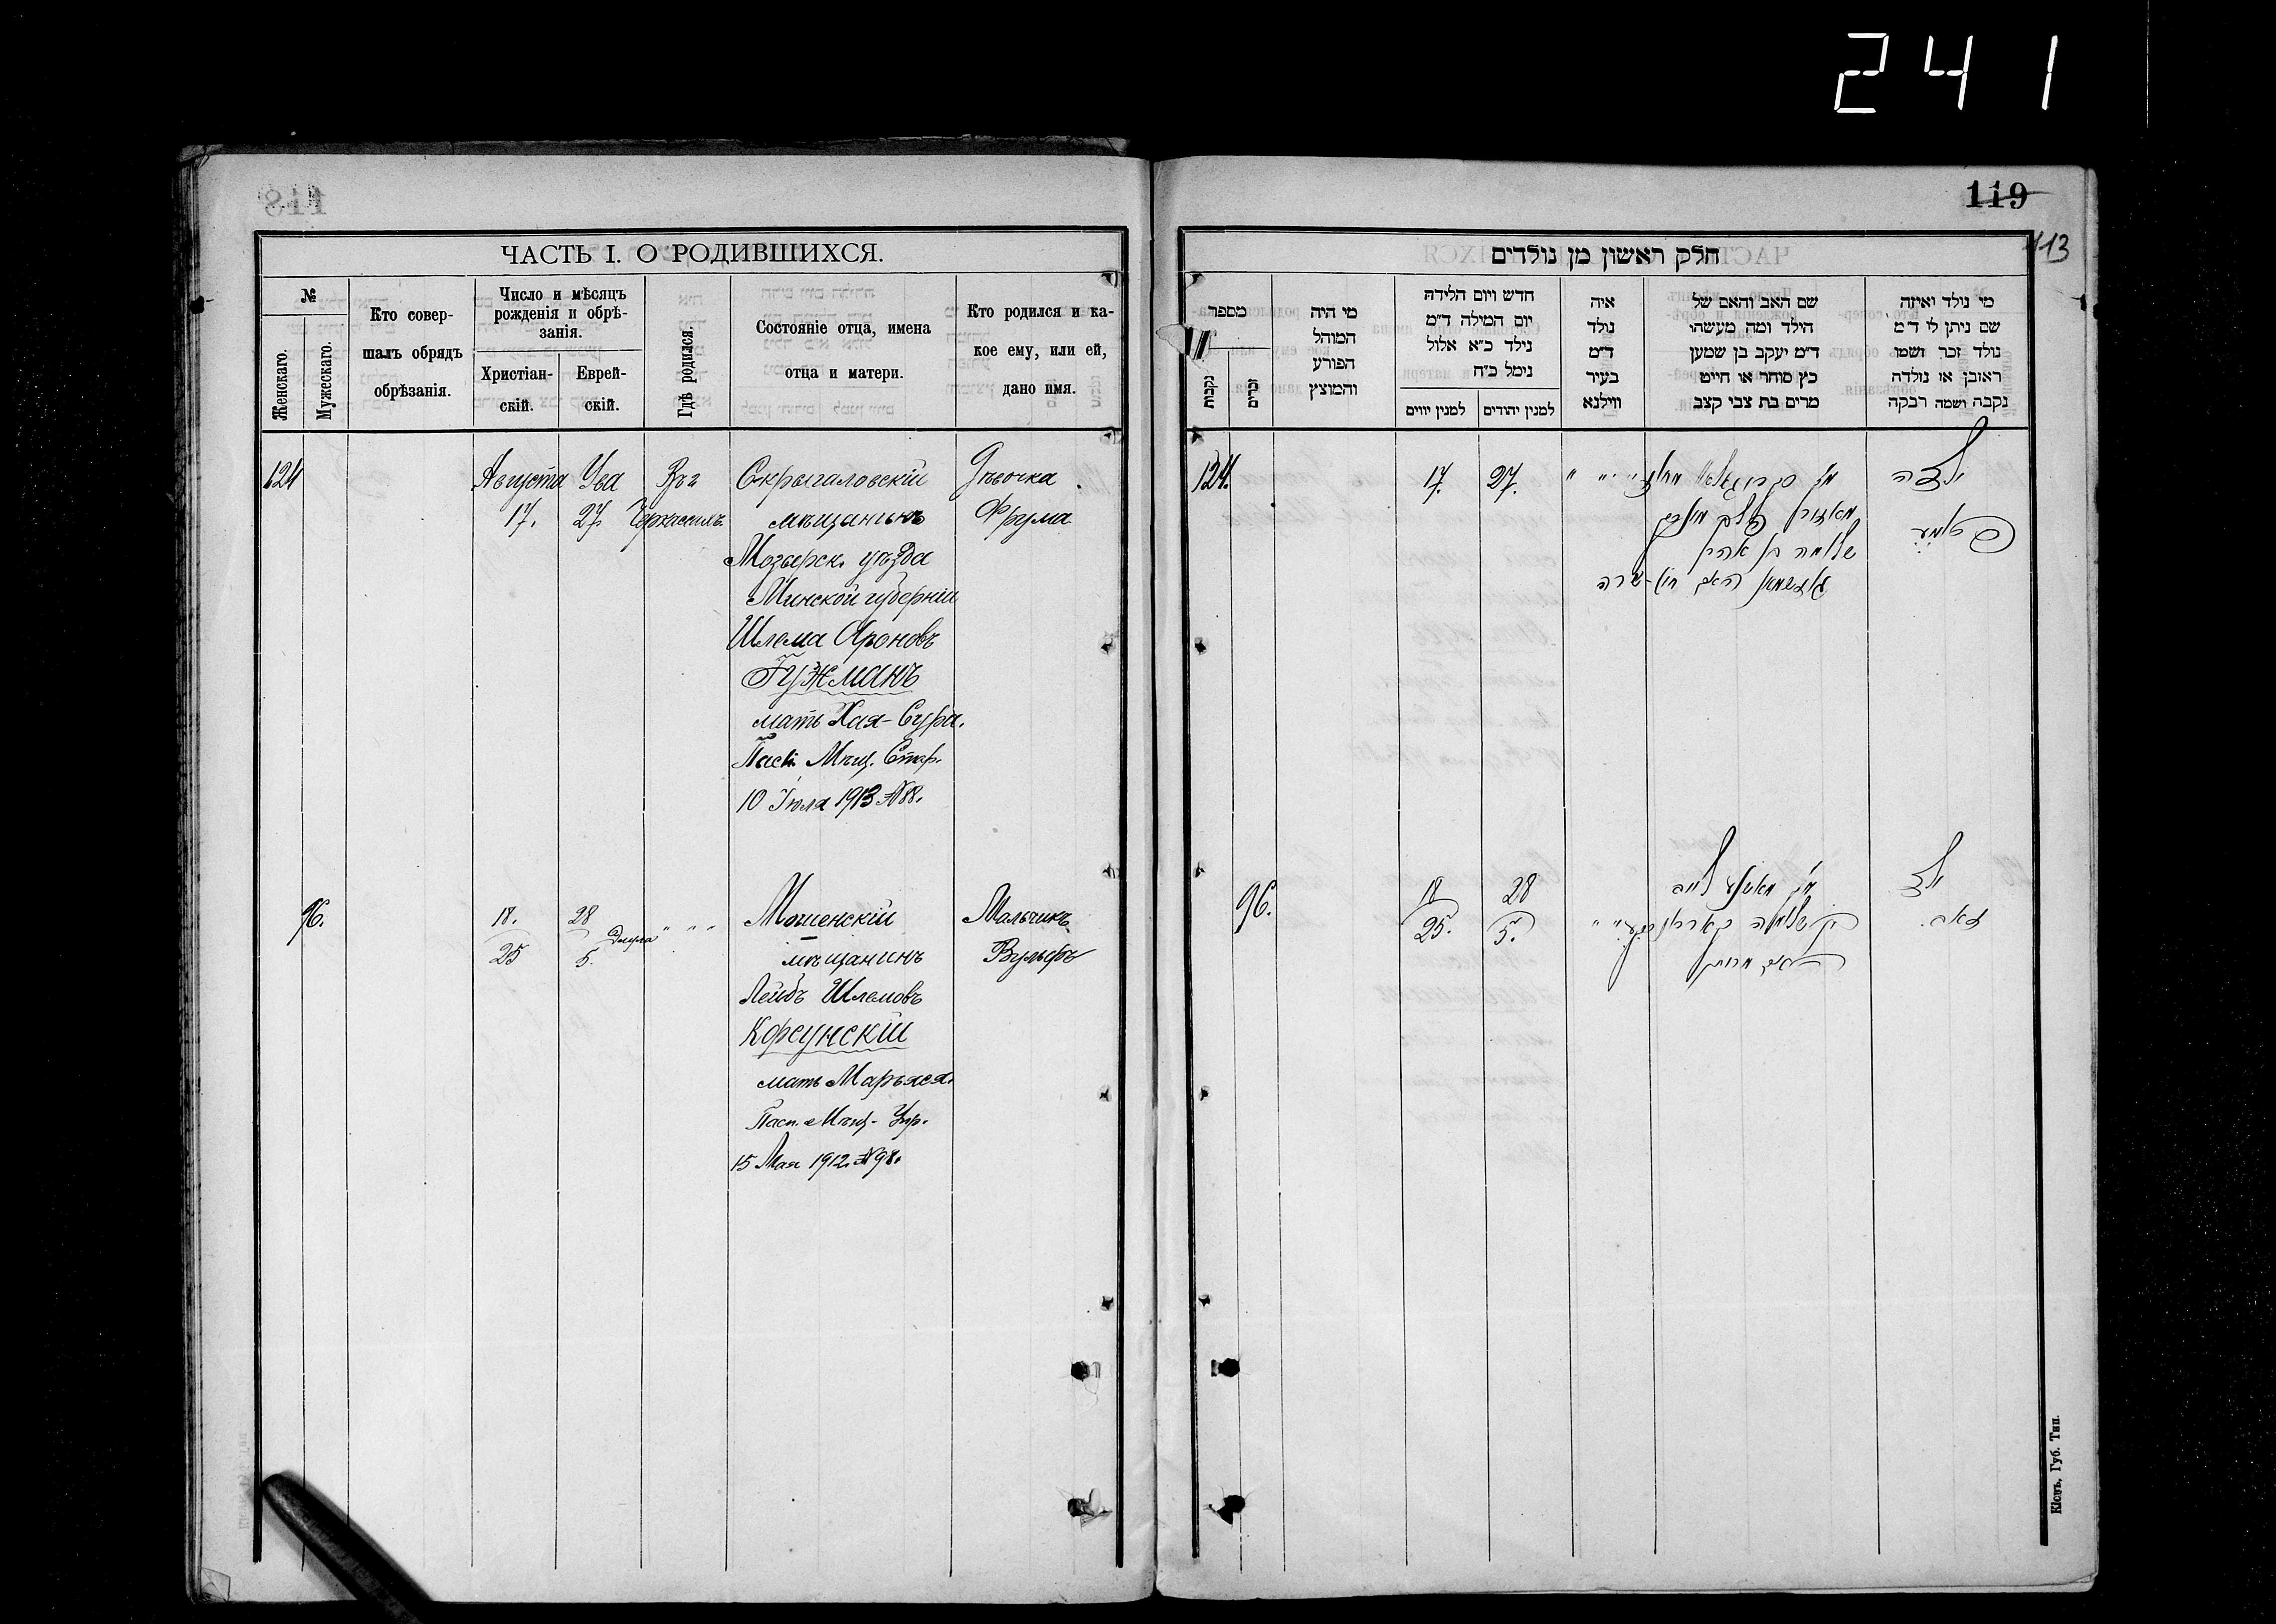 241
119
113
ЧАСТЬ I. О РОДИВШИХСЯ.
№
Женскаго.
Мужескаго.
Кто совер-
шалъ обрядъ
обрѣзанія.
Число и мѣсяцъ
рожденія и обрѣ-
занія.
Христіан-
скій.
Еврей-
скій.
Гдѣ родился.
Состояніе отца, имена
отца и матери.
Кто родился и ка-
кое ему, или ей,
дано имя.
124
Августа
17.
Ува
27.
Въ г.
Черкассахъ
Скрыгаловскій
мѣщанинъ
Мозырск. уѣзда
Минской губерніи
Шлема Ароновъ
Гужманъ
мать Хая-Сура.
Пасп. Мѣщ. Стар.
10 Іюля 1913 № 88.
Дѣвочка
Фрума
96.
18.
25
28
5.
Элула
" " "
Мошенскій
мѣщанинъ
Лейбъ Шлемовъ
Корсунскій
мать Марьяся.
Пасп. Мѣщ. Упр.
15 Мая 1912. № 98.
Мальчикъ
Вульфъ
חלק ראשון מן נולדים
מספר
נקבות
זכרים
מי היה
המוהל
הפורע
והמוצץ
חדש ויום הלידה
יום המילה ד״מ
נילד כ״א אלול
נימל כ״ח
למנין יווים
למנין יהודים
איה
נולד
ד״מ
בעיר
ווילנא
שם האב והאם של
הילד ומה מעשהו
ד״מ יעקב בן שמען
כץ סוחר או חייט
מרים בת צבי קצב
מי נולד ואיזה
שם ניתן לי ד״מ
נולד זכר ושמו
ראובן או נולדה
נקבה ושמה רבקה
124.
17.
27.
" "
שלמה בן אהרן
האם חי׳-שרה
ילדה
פרומע
96.
18
25.
28
5.
" "
בן שלמה
ילד
זאב.
Кіевъ, Губ. Тип.